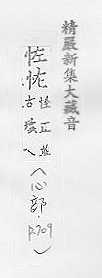 精嚴新集大藏音
恠 怪正並古壞乀（心部.p.709）